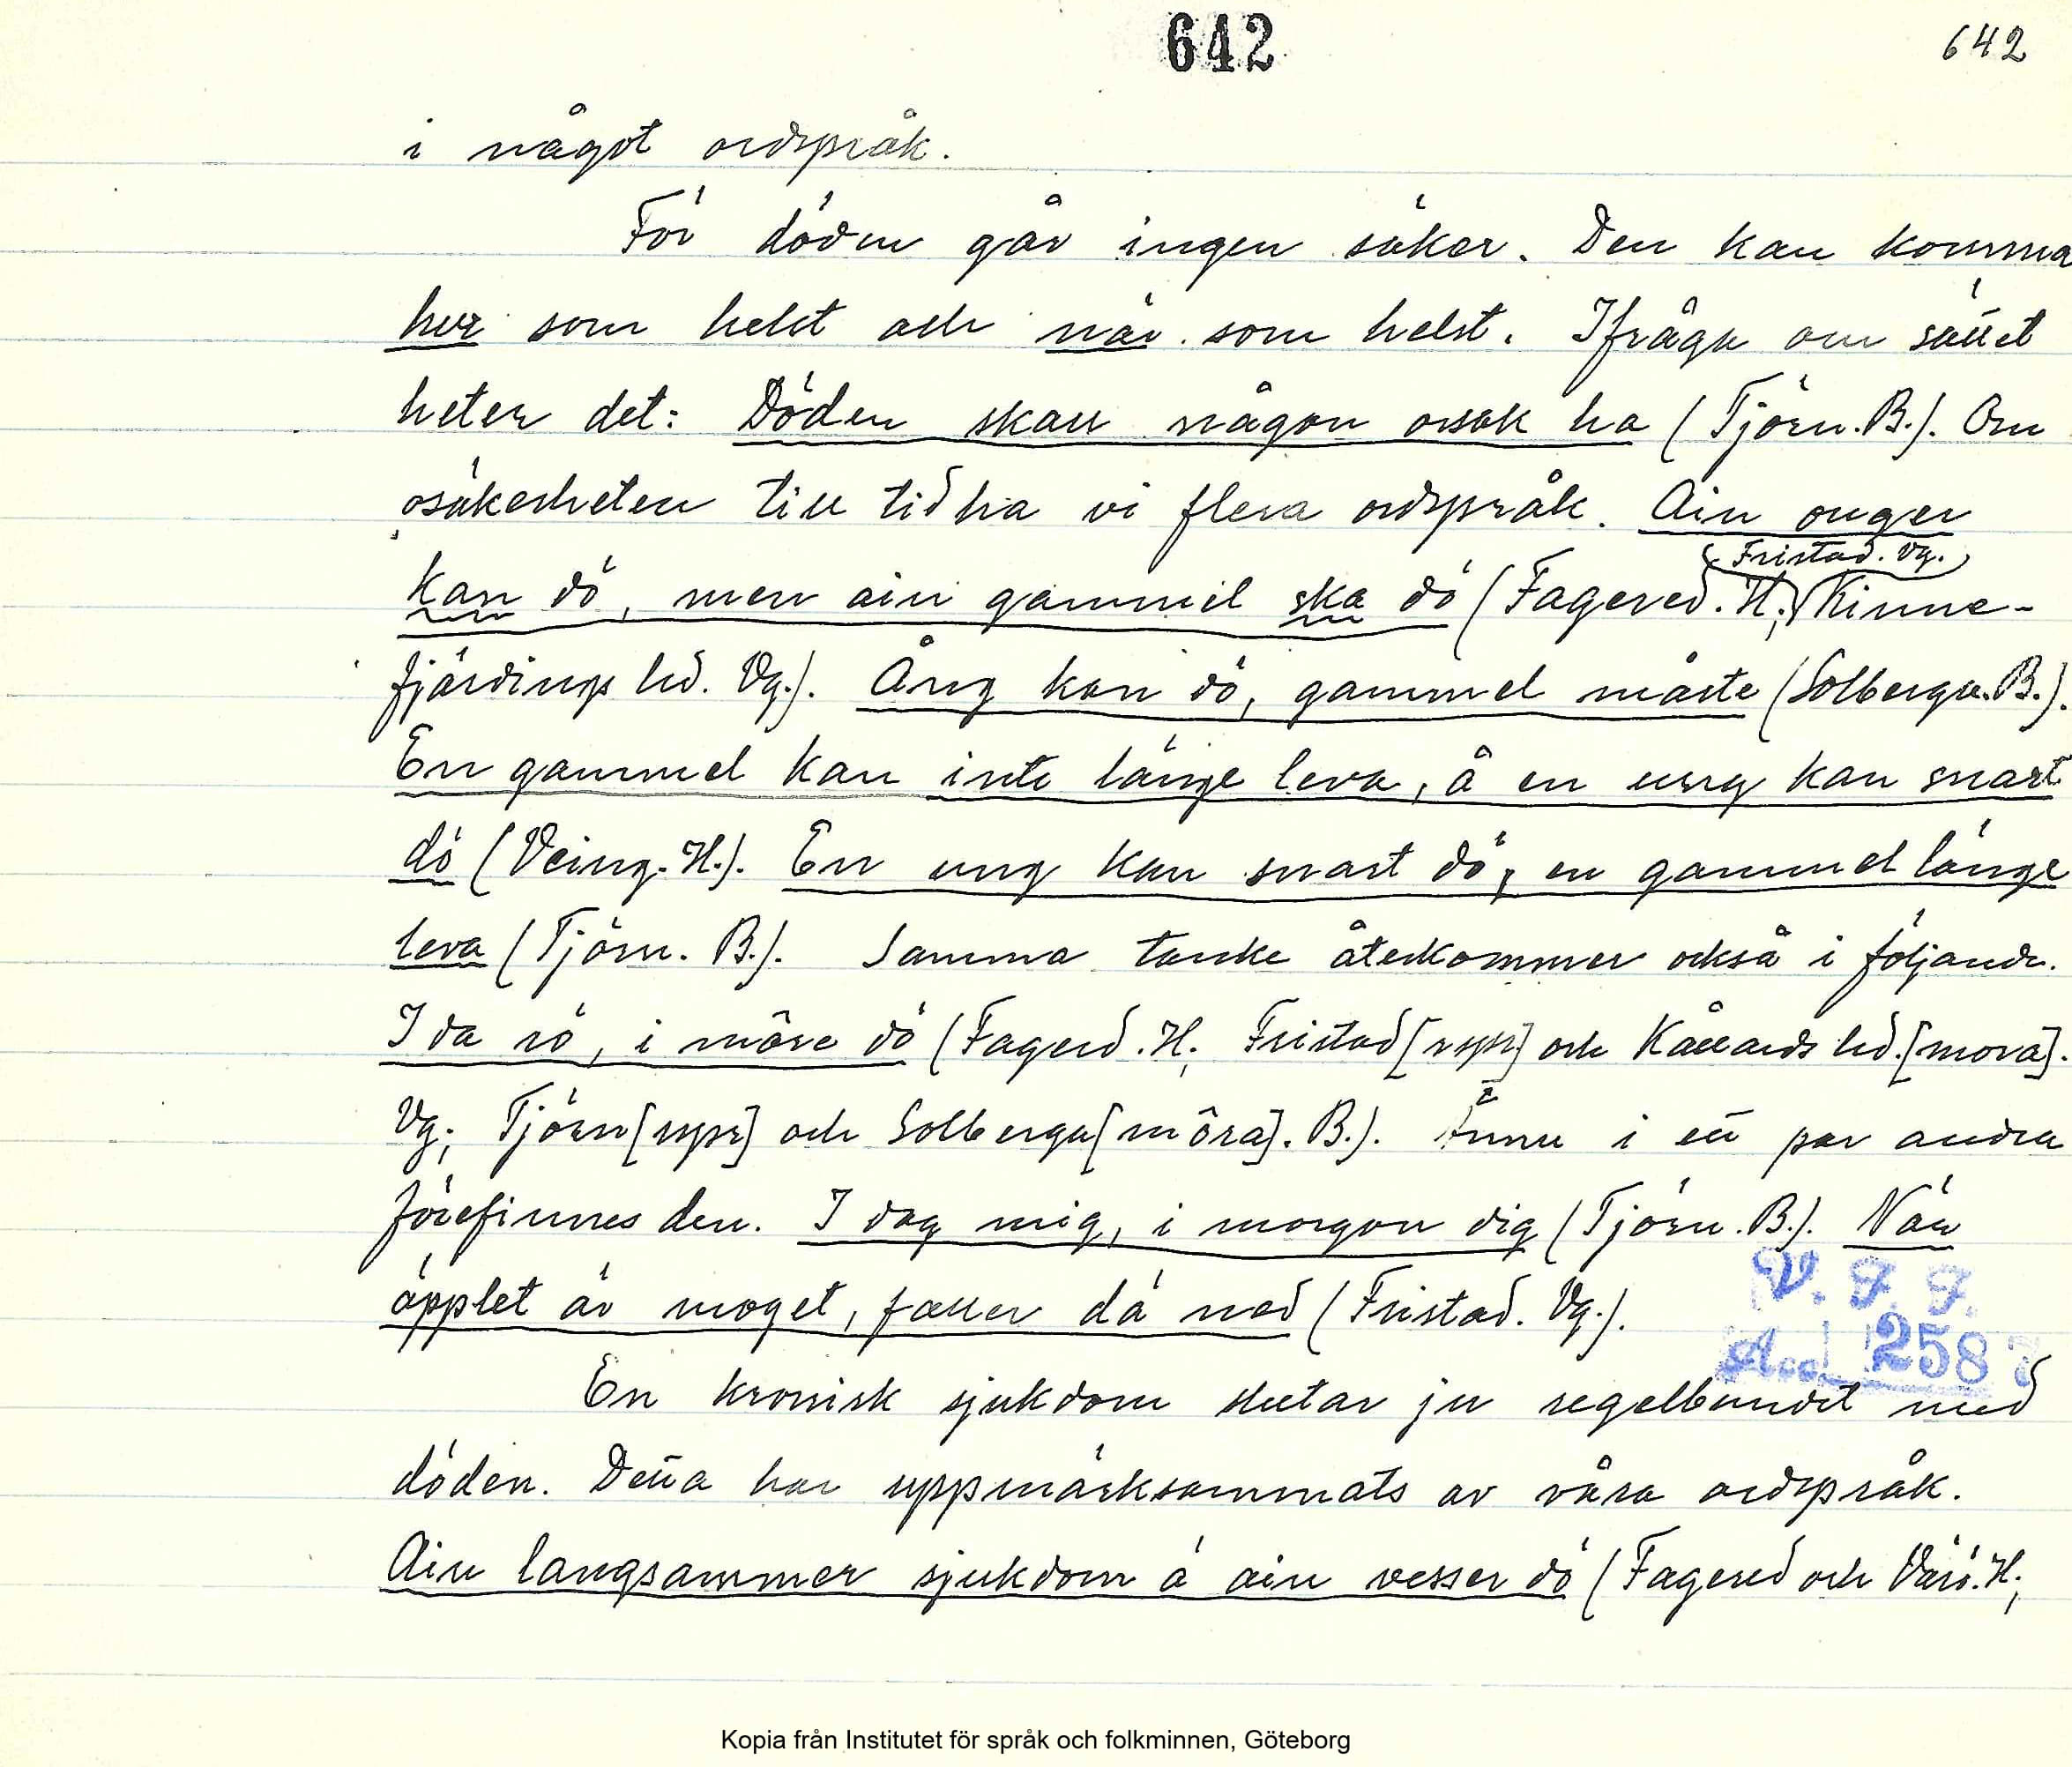 642
642
i något ordspråk.
För döden går ingen säker. Den kan komma
hur som helst och när som helst. Ifråga om sättet
heter det: Döden skall någon orsak ha (Tjörn. B.). Om
osäkerheten till tid ha vi flera ordspråk. Ain onger
(Fristad. Vg.)
kan dö, men ain gammel ska dö (Fagered. H.; Kinne-
fjärdings hd. Vg.). Ång kan dö, gammel måste (Solberga. B.).
En gammel kan inte länge leva, å en ung kan snart
dö (Veinge. H.). En ung kan snart dö, en gammel länge
leva (Tjörn. B.). Samma tanke återkommer också i följande.
I da rö, i môre dö (Fagered. H.; Fristad [ ] och Kållands hd. [mora].
Vg.; Tjörn [ ] och Solberga [môra]. B.). Ännu i ett par andra
förefinnes den. I dag mig, i morgon dig (Tjörn. B.). När
äpplet är moget, faller dä ned (Fristad. Vg.).
V. F. F.
Acc. 2587
En kronisk sjukdom slutar ju regelbundet med
döden. Detta har uppmärksammats av våra ordspråk.
Ain langsammer sjukdom ä ain vesser dö (Fagered och Värö. H.;
Kopia från Institutet för språk och folkminnen, Göteborg